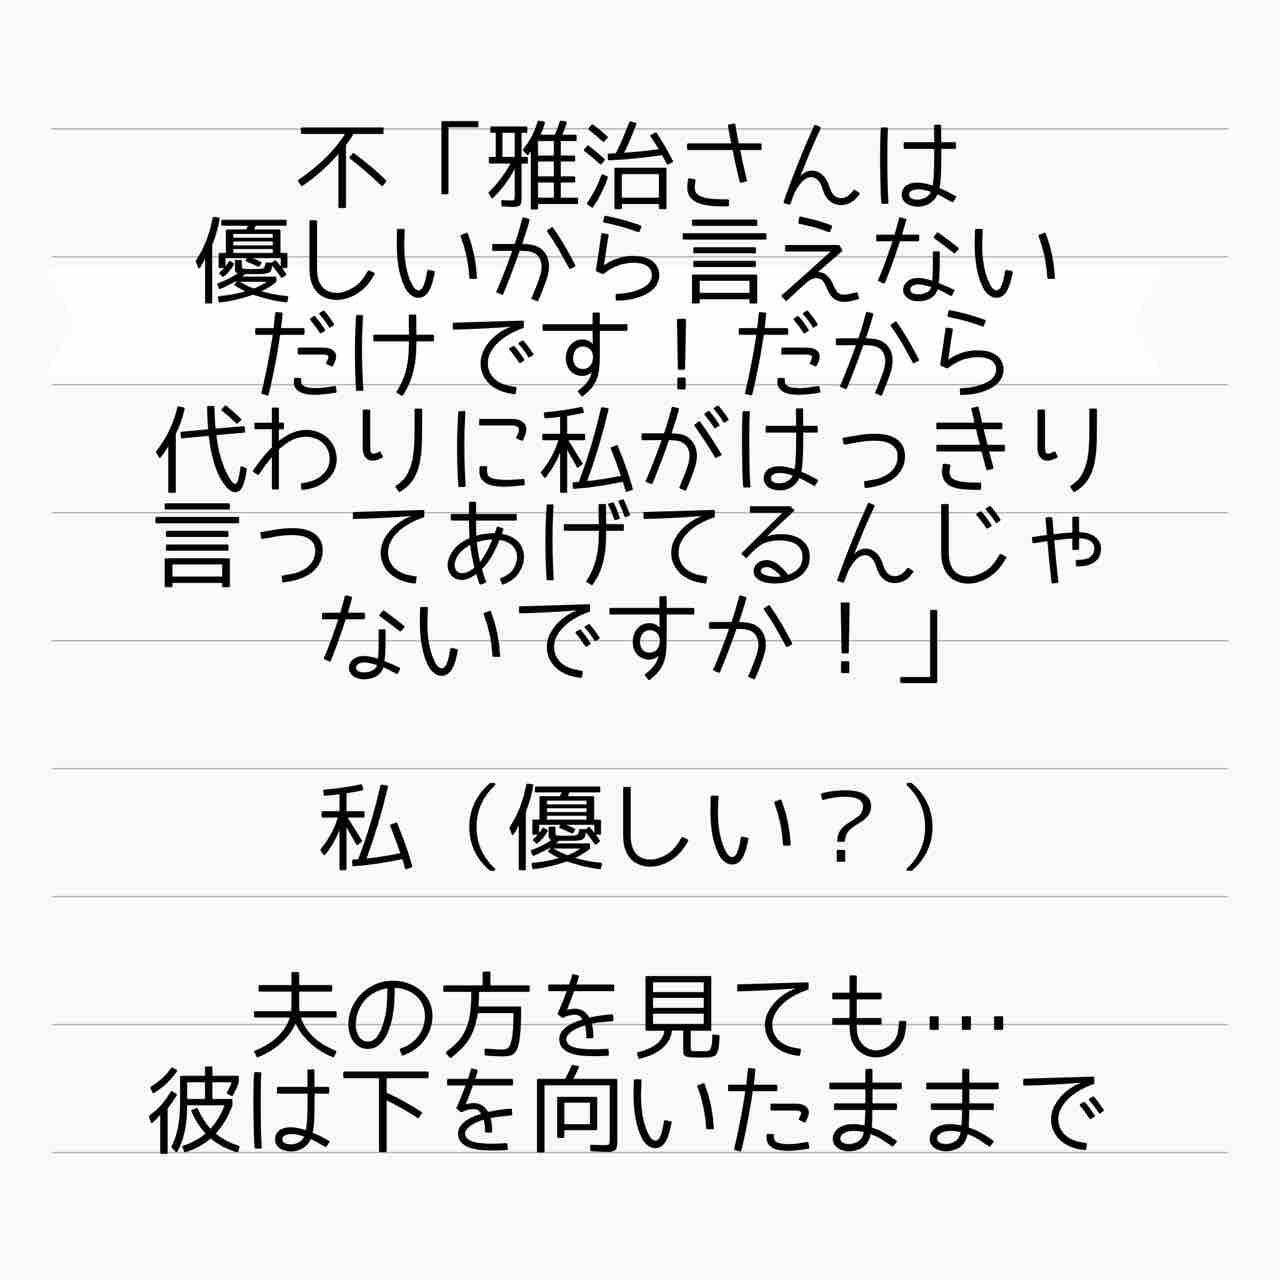 不「雅治さんは
優しいから言えない
だけです！だから
代わりに私がはっきり
言ってあげてるんじゃ
ないですか！」
私（優しい？）
夫の方を見ても…
彼は下を向いたままで